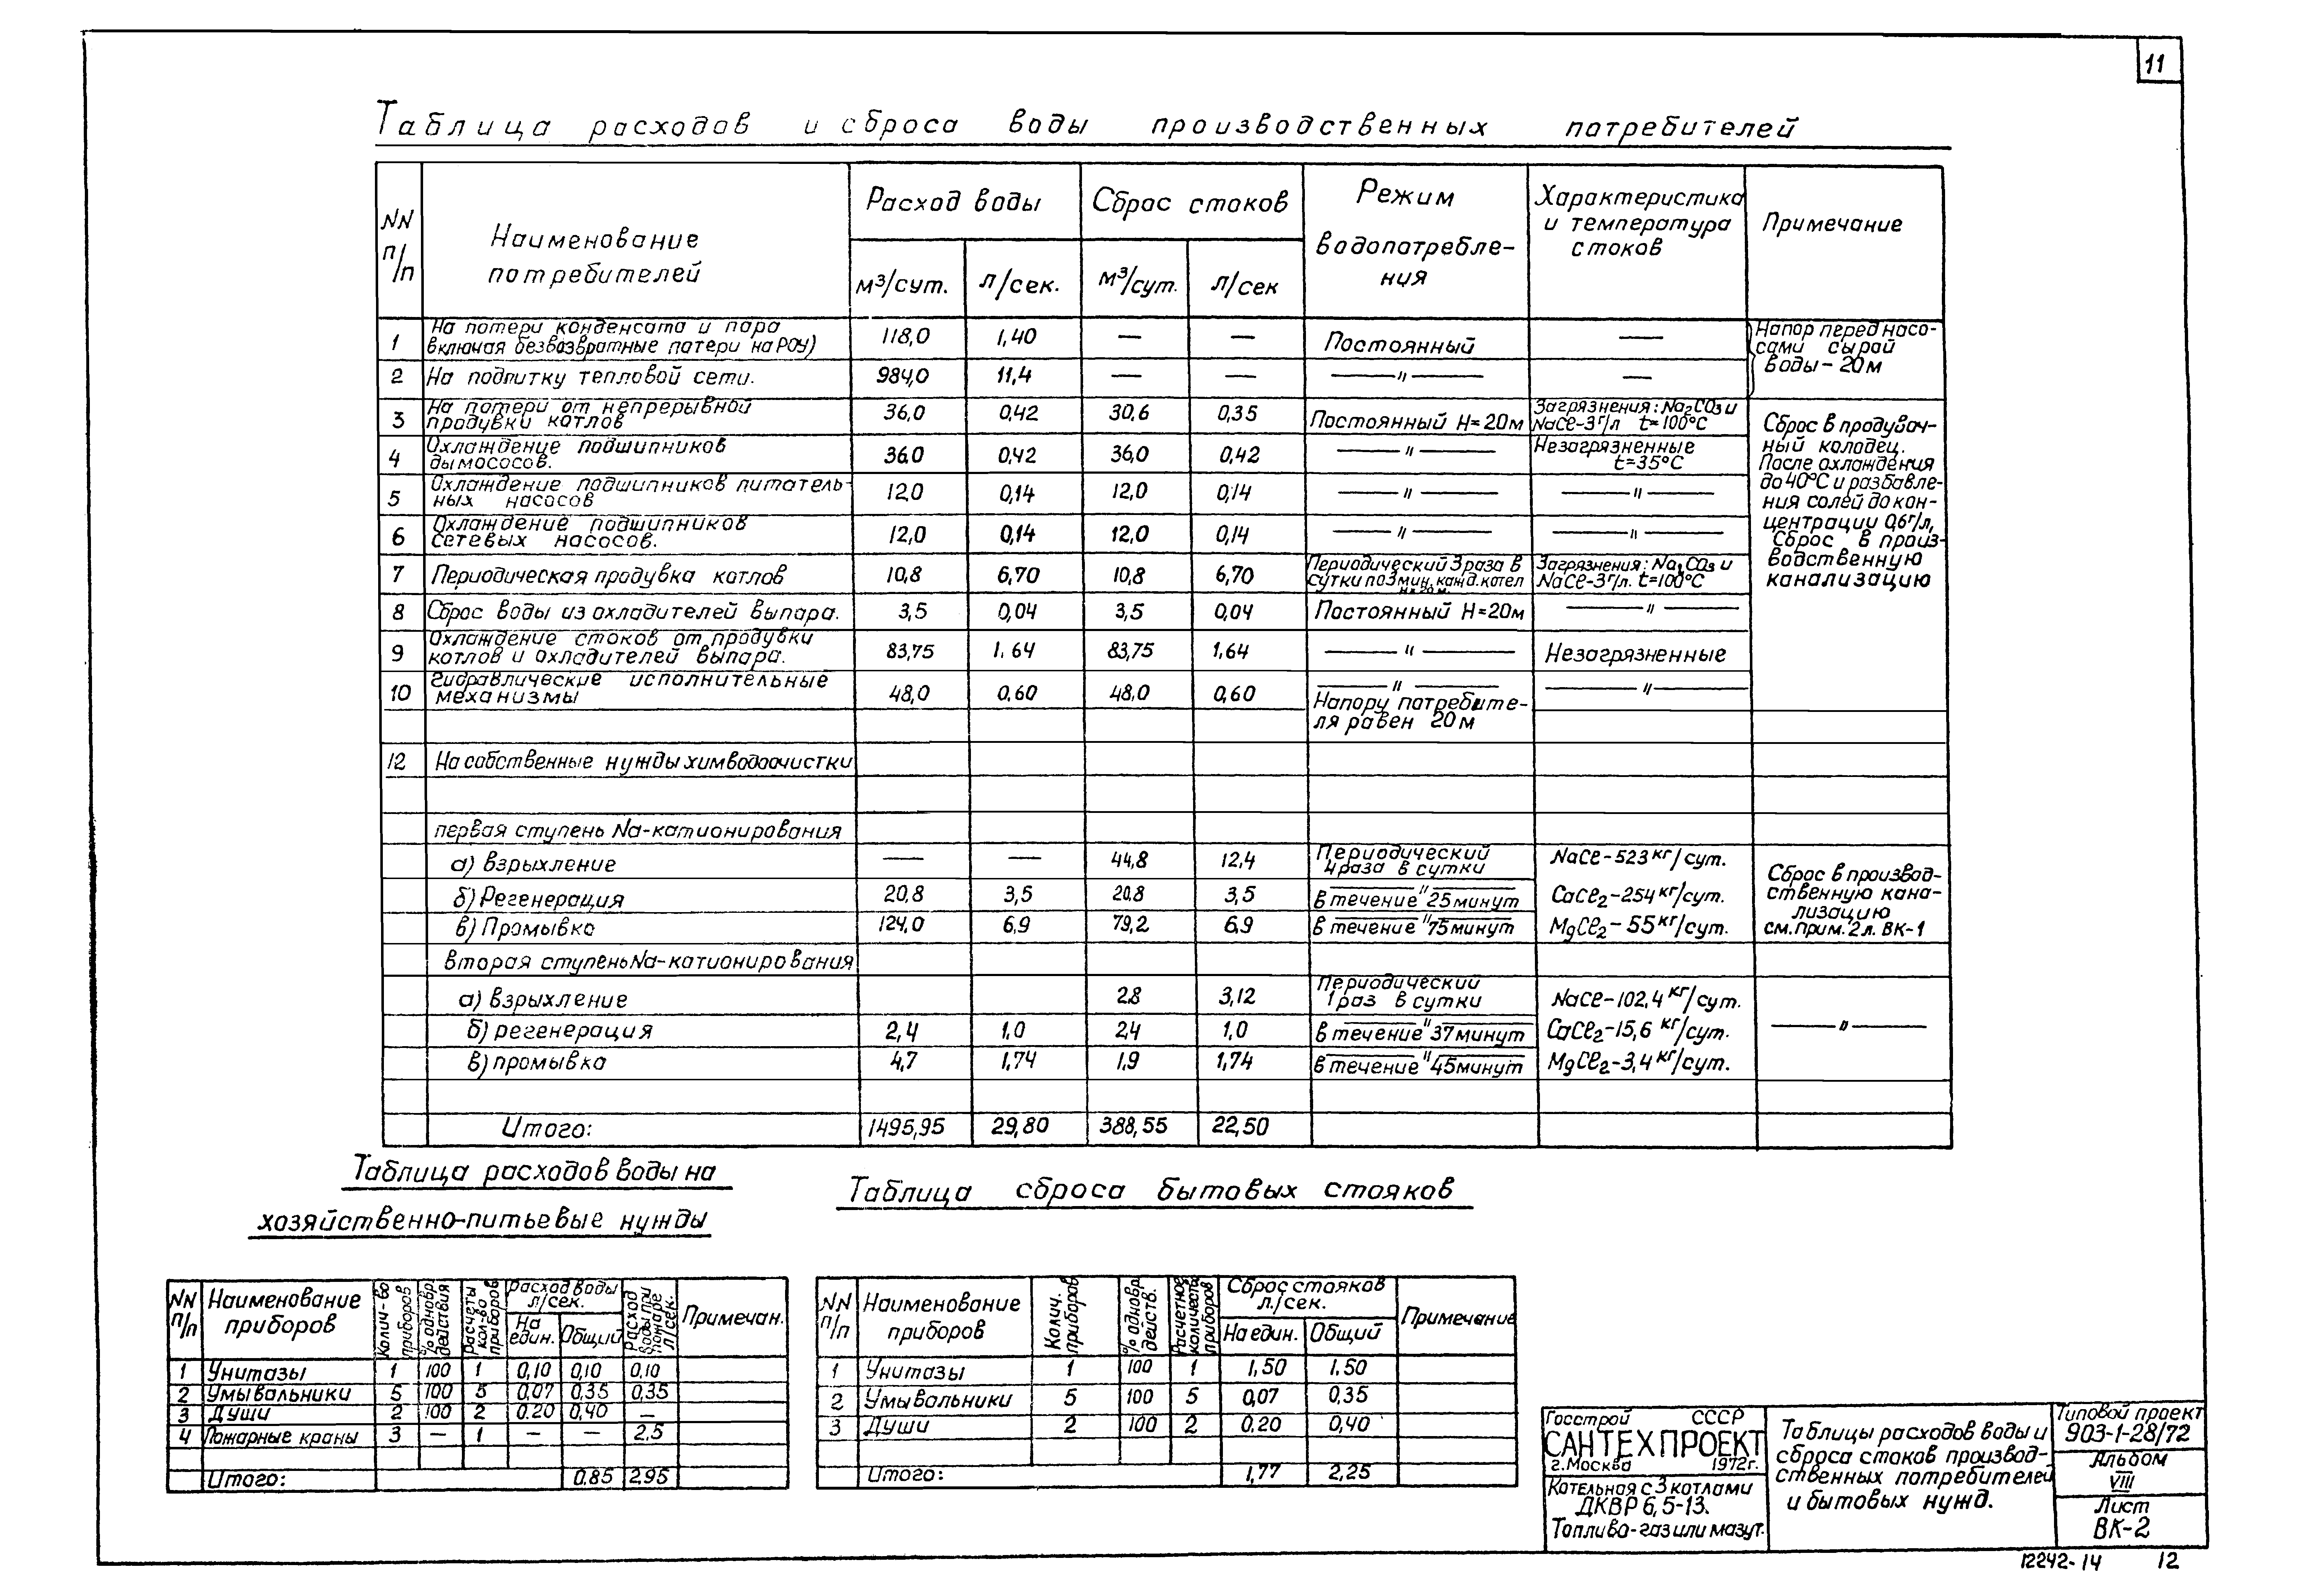 11
Таблица расходов и сброса воды производственных потребителей
NN п/п
Наименование потребителей
Расход воды
Сброс стоков
Режим водопотребле-
ния
Характеристика
и температура
стоков
Примечание
м³/сут.
л/сек.
м³/сут.
л/сек
1 На потери конденсата и пара
включая безвозвратные потери на РОУ) 118,0 1,40 — — Постоянный —
Напор перед насо-
сами сырой
воды - 20м
2 На подпитку тепловой сети. 984,0 11,4 — — —"— —
3 На потери от непрерывной
продувки котлов 36,0 0,42 30,6 0,35 Постоянный Н=20м Загрязнения: Na₂CO₃ и
NaCl-3г/л t=100°С
Сброс в продувоч-
ный колодец.
После охлаждения
до 40°С и разбавле-
ния солей до кон-
центрации 0,6г/л,
Сброс в произ-
водственную
канализацию
4 Охлаждение подшипников
дымососов. 36,0 0,42 36,0 0,42 —"— Незагрязненные
t=35°С
5 Охлаждение подшипников питатель-
ных насосов 12,0 0,14 12,0 0,14 —"— —"—
6 Охлаждение подшипников
сетевых насосов. 12,0 0,14 12,0 0,14 —"— —"—
7 Периодическая продувка котлов 10,8 6,70 10,8 6,70 Периодический 3 раза в
сутки по 3 мин. кажд. котел
Н=20м Загрязнения: Na₂CO₃ и
NaCl-3г/л. t=100°С
8 Сброс воды из охладителей выпара. 3,5 0,04 3,5 0,04 Постоянный Н=20м —"—
9 Охлаждение стоков от продувки
котлов и охладителей выпара. 83,75 1.64 83,75 1,64 —"— Незагрязненные
10 Гидравлические исполнительные
механизмы 48,0 0,60 48,0 0,60 —"— —"—
Напор у потребите-
ля равен 20м
12 На собственные нужды химводоочистки
первая ступень Na-катионирования
а) Взрыхление — — 44,8 12,4 Периодический
4 раза в сутки NaCl-523 кг/сут.
б) Регенерация 20,8 3,5 20,8 3,5 —"—
в течение 25 минут CaCl₂-254 кг/сут.
в) Промывка 124,0 6,9 79,2 6,9 —"—
в течение 75 минут MgCl₂-55 кг/сут.
Сброс в производ-
ственную кана-
лизацию
см. прим. 2 л. ВК-1
Вторая ступень Na-катионирования
а) взрыхление 2,8 3,12 Периодический
1 раз в сутки NaCl-102,4 кг/сут.
б) регенерация 2,4 1,0 2,4 1,0 —"—
в течение 37 минут CaCl₂-15,6 кг/сут. —"—
в) промывка 4,7 1,74 1,9 1,74 —"—
в течение 45 минут MgCl₂-3,4 кг/сут.
Итого: 1495,95 29,80 388,55 22,50
Таблица расходов воды на
хозяйственно-питьевые нужды
NN п/п
Наименование приборов
Колич-во приборов
% однобр. действия
Расчеты кол-ва приборов
Расход воды л/сек.
На един.
Общий
Расход воды при пожаре л/сек.
Примечан.
1 Унитазы 1 100 1 0,10 0,10 0,10
2 Умывальники 5 100 5 0,07 0,35 0,35
3 Души 2 100 2 0.20 0,40 —
4 Пожарные краны 3 — 1 — — 2,5
Итого: 0.85 2,95
Таблица сброса бытовых стояков
NN п/п
Наименование приборов
Колич. приборов
% однов. действ.
Расчетное количеств. приборов
Сброс стояков л./сек.
На един.
Общий
Примечание
1 Унитазы 1 100 1 1,50 1.50
2 Умывальники 5 100 5 0,07 0,35
3 Души 2 100 2 0.20 0,40
Итого: 1,77 2,25
Госстрой СССР
САНТЕХПРОЕКТ
г. Москва 1972г.
Котельная с 3 котлами
ДКВР 6,5-13.
Топливо-газ или мазут.
Таблицы расходов воды и
сброса стоков производ-
ственных потребителей
и бытовых нужд.
Типовой проект
903-1-28/72
Альбом
VIII
Лист
ВК-2
12242-14 12